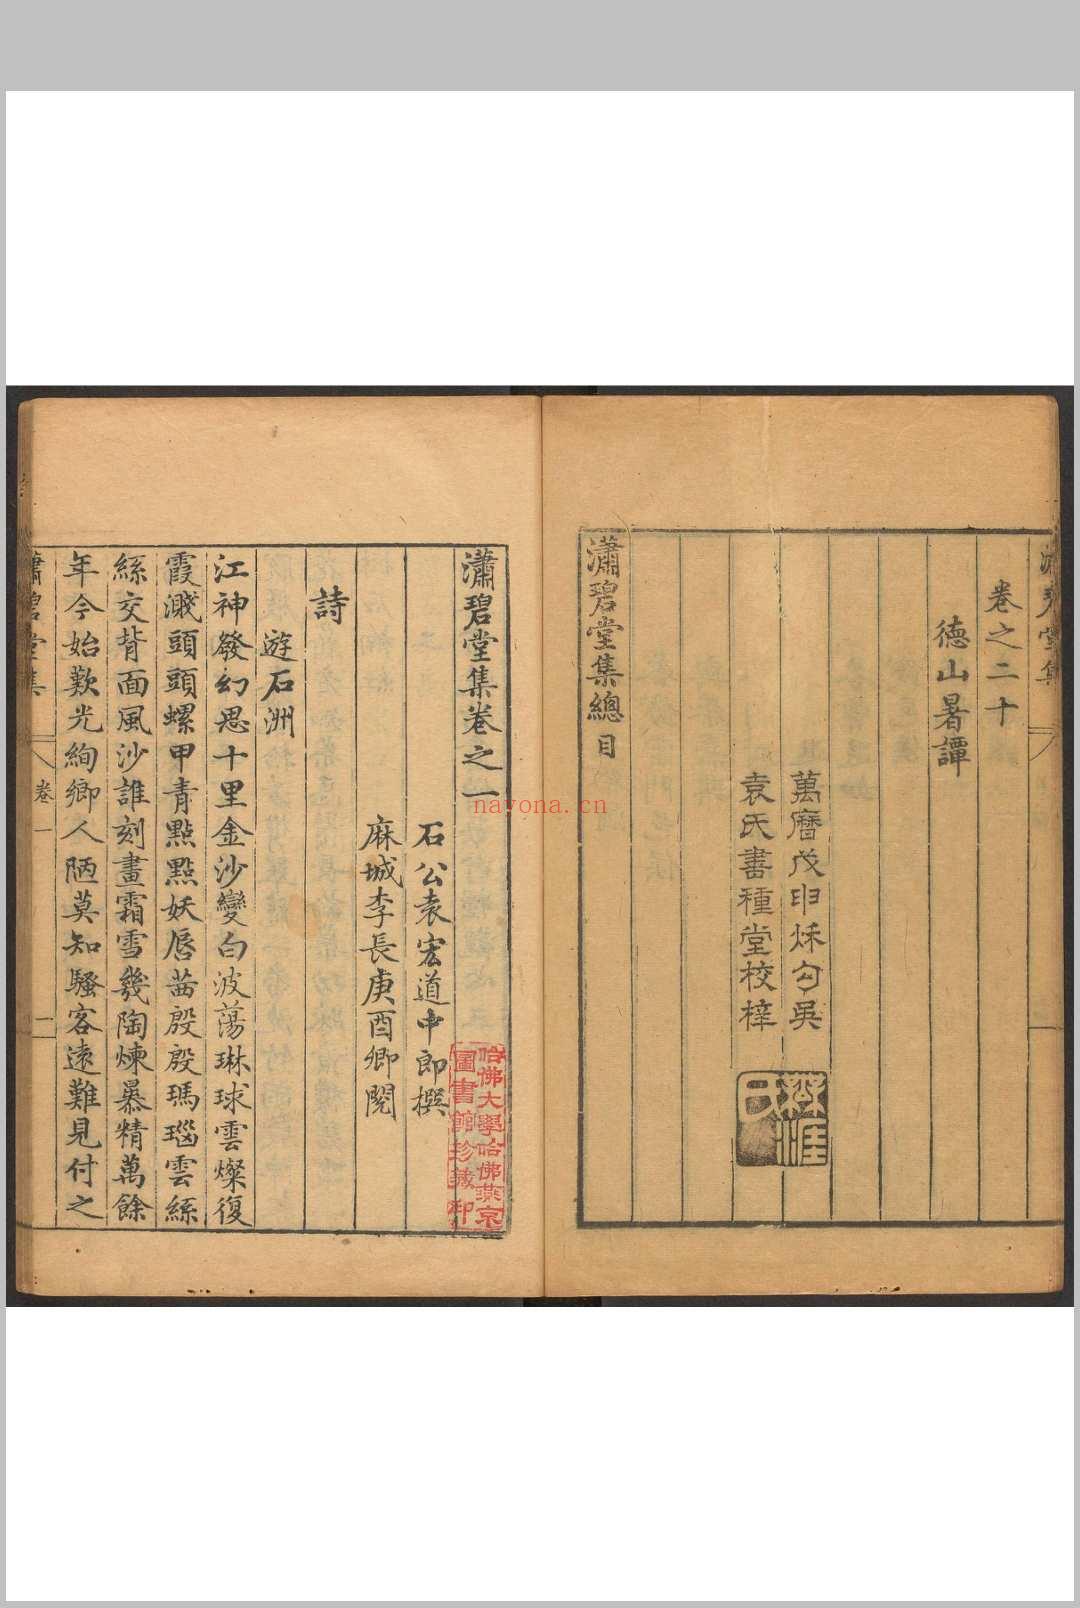 卷之二十
德山暑譚
萬曆戊申秌勾吳
袁氏書種堂校梓
瀟碧堂集總目
瀟碧堂集卷之一
石公袁宏道中郎撰
麻城李長庚酉卿閱
哈佛大學哈佛燕京
圖書館珍藏印
詩
遊石洲
江神發幻思十里金沙變白波蕩琳球雲燦復
霞濺頭頭螺甲青點點妖唇茜殷殷瑪瑙雲絲
絲交背面風沙誰刻畫霜雪幾陶煉暴精萬餘
年今始歎光絢鄉人陋莫知騷客遠難見付之
瀟碧堂集
卷一
一
nayona.cn